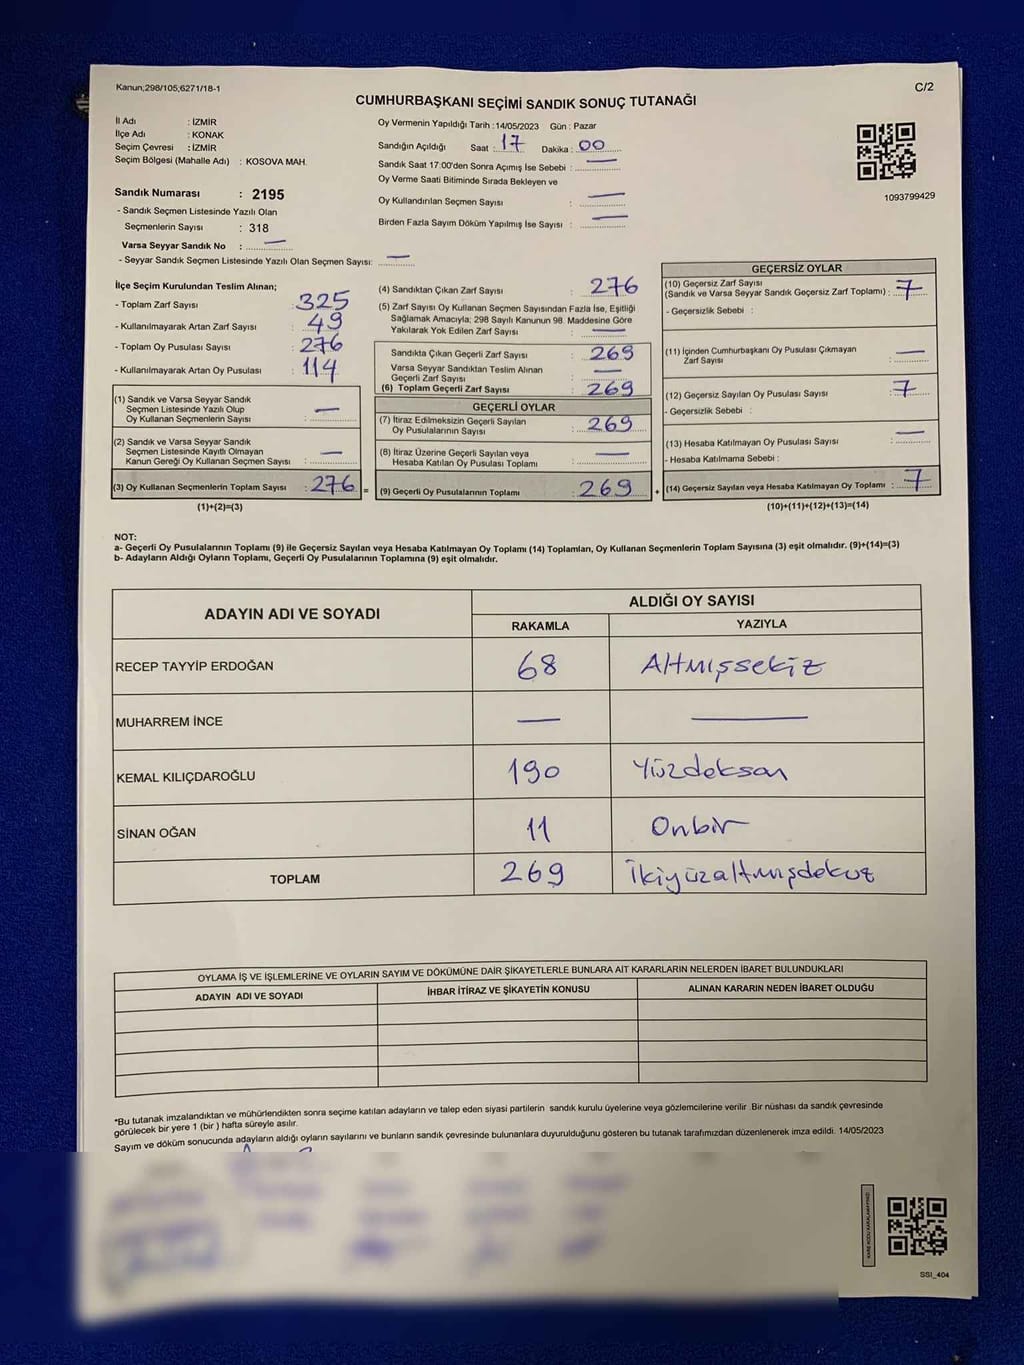 Kanun;298/105;6271/18-1
C/2
CUMHURBAŞKANI SEÇİMİ SANDIK SONUÇ TUTANAĞI
İl Adı : İZMİR
İlçe Adı : KONAK
Seçim Çevresi : İZMİR
Seçim Bölgesi (Mahalle Adı) : KOSOVA MAH.
Sandık Numarası : 2195
- Sandık Seçmen Listesinde Yazılı Olan
Seçmenlerin Sayısı : 318
Varsa Seyyar Sandık No : —
- Seyyar Sandık Seçmen Listesinde Yazılı Olan Seçmen Sayısı: —
Oy Vermenin Yapıldığı Tarih :14/05/2023 Gün : Pazar
Sandığın Açıldığı Saat : 17 Dakika : 00
Sandık Saat 17:00'den Sonra Açımış İse Sebebi : —
Oy Verme Saati Bitiminde Sırada Bekleyen ve
Oy Kullandırılan Seçmen Sayısı : —
Birden Fazla Sayım Döküm Yapılmış İse Sayısı : —
1093799429
İlçe Seçim Kurulundan Teslim Alınan;
- Toplam Zarf Sayısı : 325
- Kullanılmayarak Artan Zarf Sayısı : 49
- Toplam Oy Pusulası Sayısı : 276
- Kullanılmayarak Artan Oy Pusulası : 114
(1) Sandık ve Varsa Seyyar Sandık
Seçmen Listesinde Yazılı Olup
Oy Kullanan Seçmenlerin Sayısı : —
(2) Sandık ve Varsa Seyyar Sandık
Seçmen Listesinde Kayıtlı Olmayan
Kanun Gereği Oy Kullanan Seçmen Sayısı : —
(3) Oy Kullanan Seçmenlerin Toplam Sayısı : 276 =
(1)+(2)=(3)
(4) Sandıktan Çıkan Zarf Sayısı : 276
(5) Zarf Sayısı Oy Kullanan Seçmen Sayısından Fazla İse, Eşitliği
Sağlamak Amacıyla; 298 Sayılı Kanunun 98. Maddesine Göre
Yakılarak Yok Edilen Zarf Sayısı : —
Sandıkta Çıkan Geçerli Zarf Sayısı : 269
Varsa Seyyar Sandıktan Teslim Alınan
Geçerli Zarf Sayısı : —
(6) Toplam Geçerli Zarf Sayısı : 269
GEÇERLİ OYLAR
(7) İtiraz Edilmeksizin Geçerli Sayılan
Oy Pusulalarının Sayısı : 269
(8) İtiraz Üzerine Geçerli Sayılan veya
Hesaba Katılan Oy Pusulası Toplamı : —
(9) Geçerli Oy Pusulalarının Toplamı : 269 +
GEÇERSİZ OYLAR
(10) Geçersiz Zarf Sayısı
(Sandık ve Varsa Seyyar Sandık Geçersiz Zarf Toplamı) : 7
- Geçersizlik Sebebi :
(11) İçinden Cumhurbaşkanı Oy Pusulası Çıkmayan
Zarf Sayısı : —
(12) Geçersiz Sayılan Oy Pusulası Sayısı : 7
- Geçersizlik Sebebi :
(13) Hesaba Katılmayan Oy Pusulası Sayısı : —
- Hesaba Katılmama Sebebi :
(14) Geçersiz Sayılan veya Hesaba Katılmayan Oy Toplamı : 7
(10)+(11)+(12)+(13)=(14)
NOT:
a- Geçerli Oy Pusulalarının Toplamı (9) ile Geçersiz Sayılan veya Hesaba Katılmayan Oy Toplamı (14) Toplamları, Oy Kullanan Seçmenlerin Toplam Sayısına (3) eşit olmalıdır. (9)+(14)=(3)
b- Adayların Aldığı Oyların Toplamı, Geçerli Oy Pusulalarının Toplamına (9) eşit olmalıdır.
ADAYIN ADI VE SOYADI
ALDIĞI OY SAYISI
RAKAMLA YAZIYLA
RECEP TAYYİP ERDOĞAN 68 Altmışsekiz
MUHARREM İNCE — —
KEMAL KILIÇDAROĞLU 190 Yüzdoksan
SİNAN OĞAN 11 Onbir
TOPLAM 269 İkiyüzaltmışdokuz
OYLAMA İŞ VE İŞLEMLERİNE VE OYLARIN SAYIM VE DÖKÜMÜNE DAİR ŞİKAYETLERLE BUNLARA AİT KARARLARIN NELERDEN İBARET BULUNDUKLARI
ADAYIN ADI VE SOYADI İHBAR İTİRAZ VE ŞİKAYETİN KONUSU ALINAN KARARIN NEDEN İBARET OLDUĞU
*Bu tutanak imzalandıktan ve mühürlendikten sonra seçime katılan adayların ve talep eden siyasi partilerin sandık kurulu üyelerine veya gözlemcilerine verilir .Bir nüshası da sandık çevresinde
görülecek bir yere 1 (bir ) hafta süreyle asılır.
Sayım ve döküm sonucunda adayların aldığı oyların sayılarını ve bunların sandık çevresinde bulunanlara duyurulduğunu gösteren bu tutanak tarafımızdan düzenlenerek imza edildi. 14/05/2023
SSİ_404